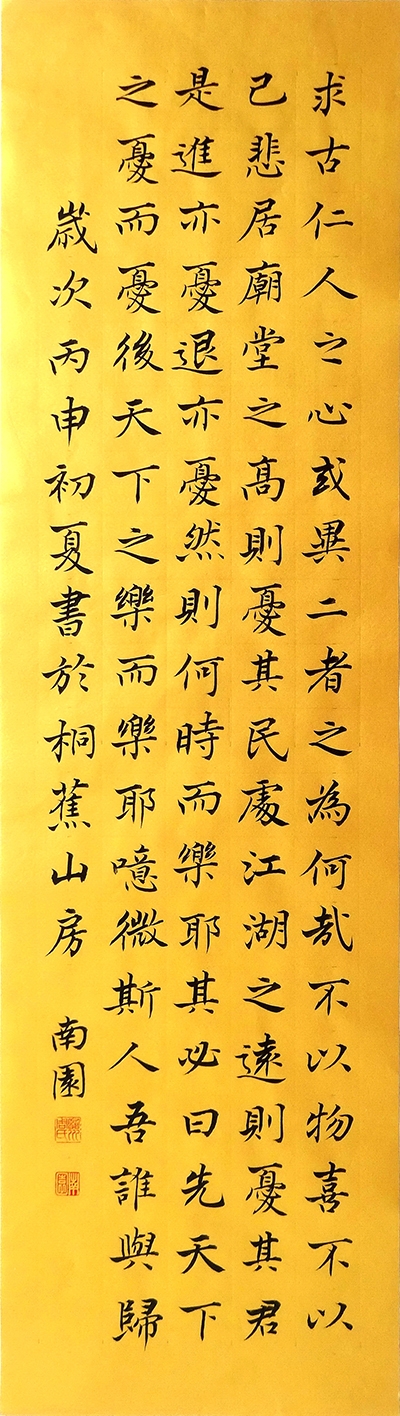 求古仁人之心或異二者之為何哉不以物喜不以
己悲居廟堂之髙則憂其民處江湖之遠則憂其君
是進亦憂退亦憂然則何時而樂耶其必曰先天下
之憂而憂後天下之樂而樂耶噫微斯人吾誰與歸
歲次丙申初夏書於桐蕉山房 南園